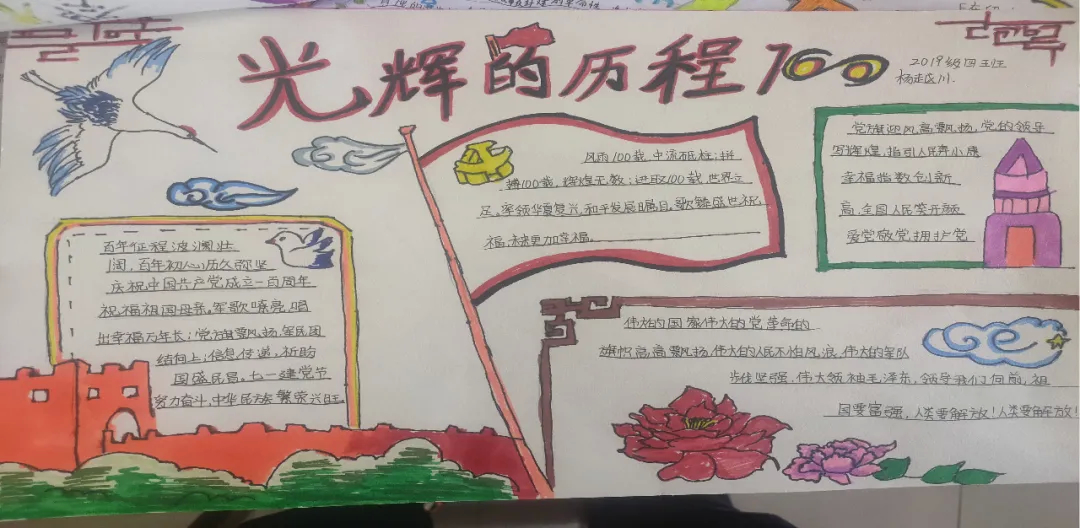 光辉的历程100
2019级四班
百年征程波澜壮
阔，百年初心历久弥坚
庆祝中国共产党成立一百周年
祝福祖国母亲。军歌嘹亮，唱
出幸福万年长；党旗飘扬，军民团
结向上；信息传递，祈盼
国盛民昌。七一建党节
努力奋斗，中华民族繁荣兴旺。
风雨100载，中流砥柱；拼
搏100载，辉煌无数；进取100载，世界立
足。率领华夏复兴，和平发展瞩目。歌臻盛世祝
福，未来更加幸福。
党旗迎风高飘扬，党的领导
写辉煌，指引人民奔小康
幸福指数创新
高，全国人民笑开颜
爱党敬党拥护党
伟大的国家伟大的党革命的
旗帜高高飘扬，伟大的人民不怕风浪，伟大的军队
步伐坚强，伟大领袖毛泽东，领导我们向前，祖
国要富强，人类要解放！人类要解放！